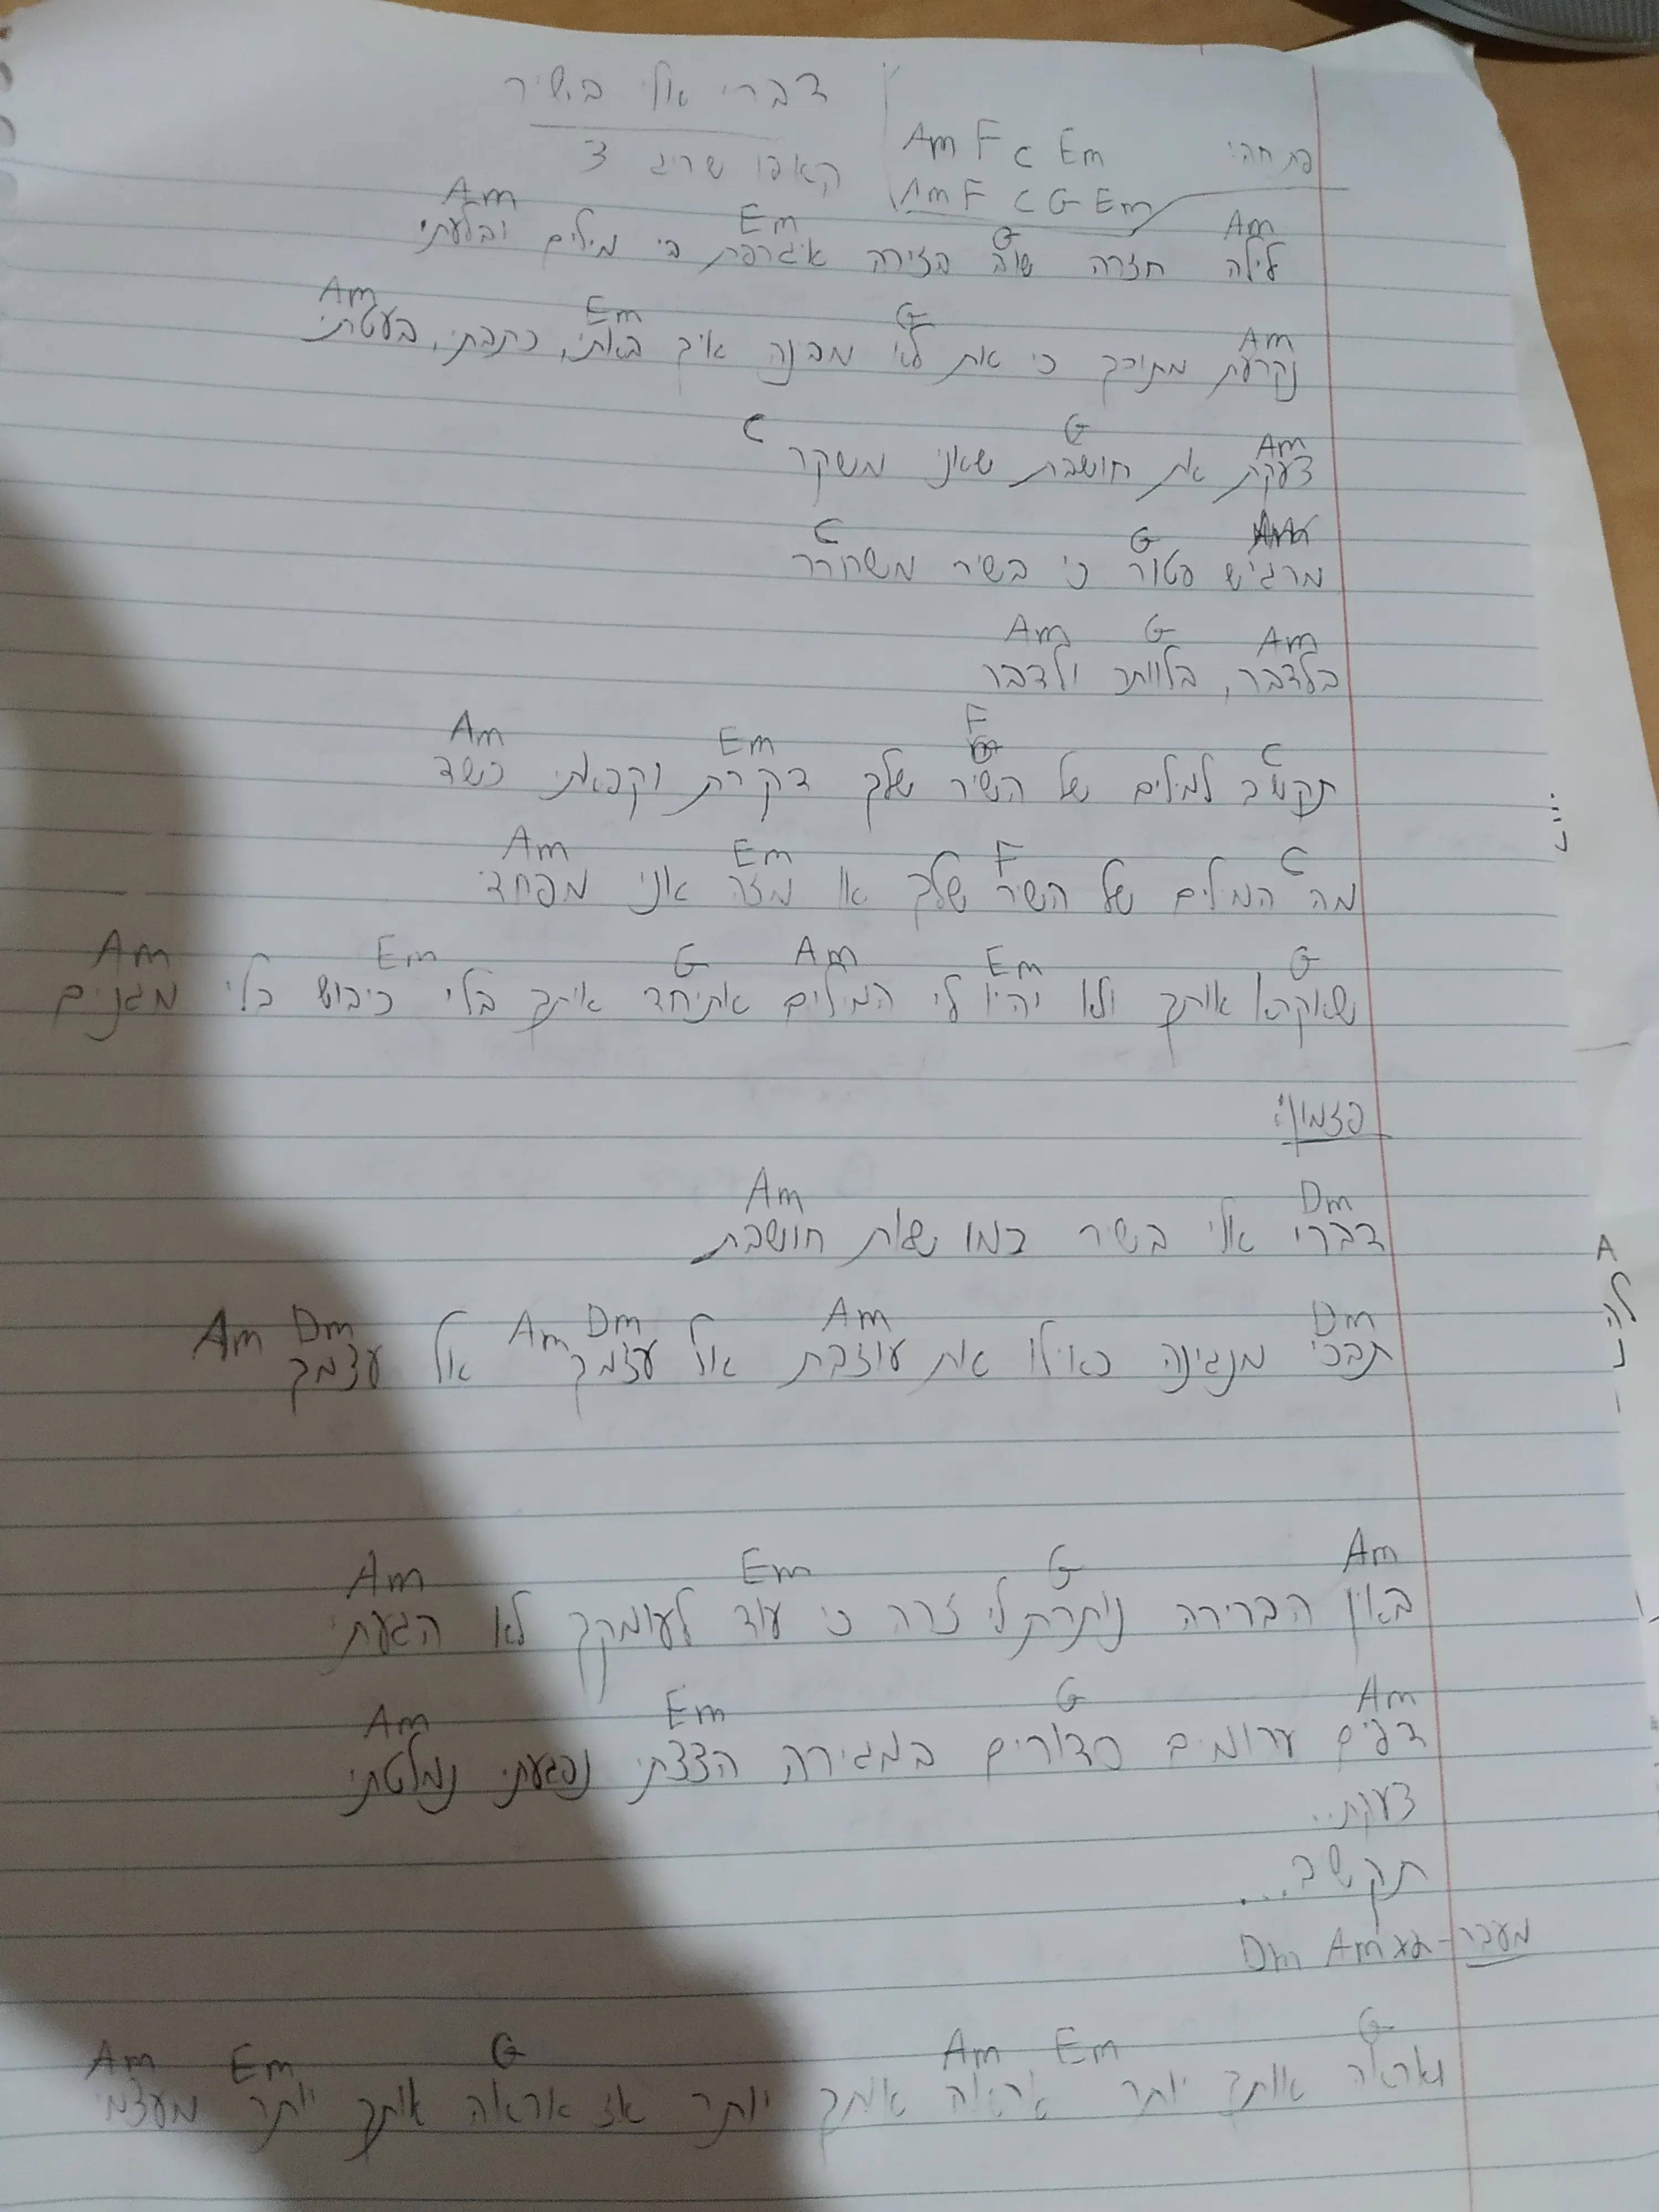 דברי אלי בשיר
פתחה: Am F C Em
קאפו שריג 3
Am F C G Em
Am G Em Am
לילה חזרה שוב הזירה איגרפת בי מילים ובלעתי
Am G Em Am
נקרעת מתוכך כי את לא מבנה איך באתי, כתבתי, בעטתי
Am G C
צעקת את חושבת שאני משקר
G C
מרגיש פטור כי בשיר משחרר
Am G Am
בלדבר, בלוותר ולדבר
C F Em Am
תקשיב למילים של השיר שלך דקרת וקפאתי כשד
C F Em Am
מה המילים של השיר שלך או מזה אני מפחד
G Em Am G Em Am
שאקרא אותך ולא יהיו לי המילים אתיחד איתך בלי כיבוש בלי מגנים
פזמון:
Dm Am
דברי אלי בשיר כמו שאת חושבת
Dm Am Dm Am Dm Am
תבכי מנגינה כאילו את עוזבת אל עצמך אל עצמך
Am G Em Am
באין הברירה נותרת לי זרה כי עוד לעומקך לא הגעתי
Am G Em Am
דפים ערומים סדורים במגירה הצצתי נפגעתי נמלטתי
צעקת..
תקשיב...
מעבר - Am Dm
G Em Am G Em Am
ואראה אותך יותר אראה אותך יותר אז אראה אותך יותר מעצמי